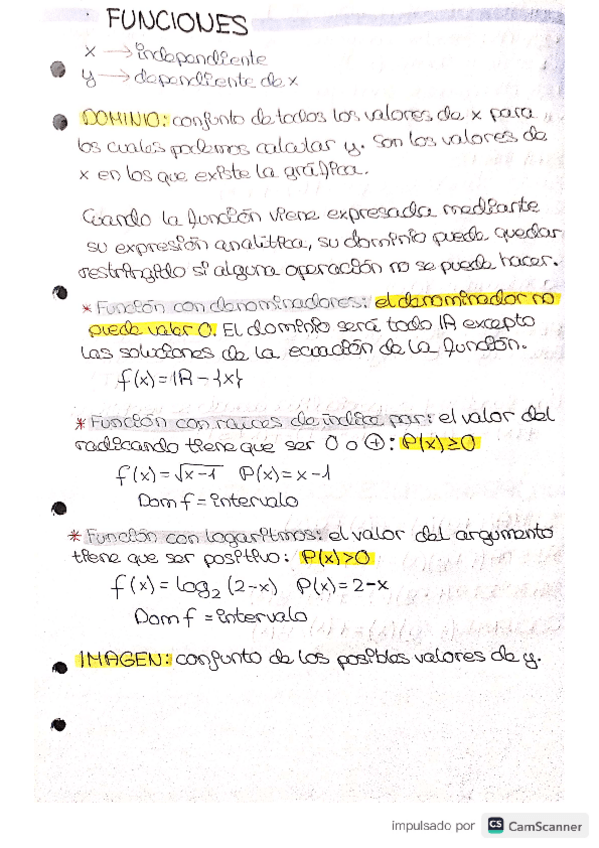 FUNCIONES
x → independiente
y → dependiente de x
DOMINIO: conjunto de todos los valores de x para
los cuales podemos calcular y. Son los valores de
x en los que existe la gráfica.
Cuando la función viene expresada mediante
su expresión analítica, su dominio puede quedar
restringido si alguna operación no se puede hacer.
* Función con denominadores: el denominador no
puede valer 0. El dominio será todo ℝ excepto
las soluciones de la ecuación de la función.
f(x)=ℝ-{x}
* Función con raíces de índice par: el valor del
radicando tiene que ser 0 o ⊕: P(x)≥0
f(x)=√x-1 P(x)=x-1
Dom f = intervalo
* Función con logaritmos: el valor del argumento
tiene que ser positivo: P(x)>0
f(x)=log₂(2-x) P(x)=2-x
Dom f = intervalo
IMAGEN: conjunto de los posibles valores de y.
impulsado por CS CamScanner